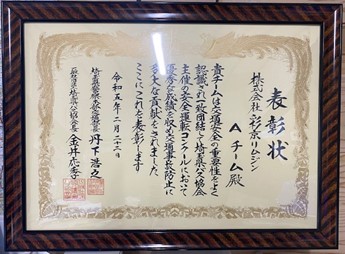 表彰状
株式会社 彩京リムジン
Aチーム殿
貴チームは交通安全の重要性をよく
認識され一致団結して埼玉県バス協会
主催の安全運転コンクールにおいて
優秀な成績を収め交通事故防止に
多大な貢献をされました
ここにこれを表彰します
令和五年二月二十二日
埼玉県警察本部交通部長 丹下浩之
一般社団法人埼玉県バス協会会長